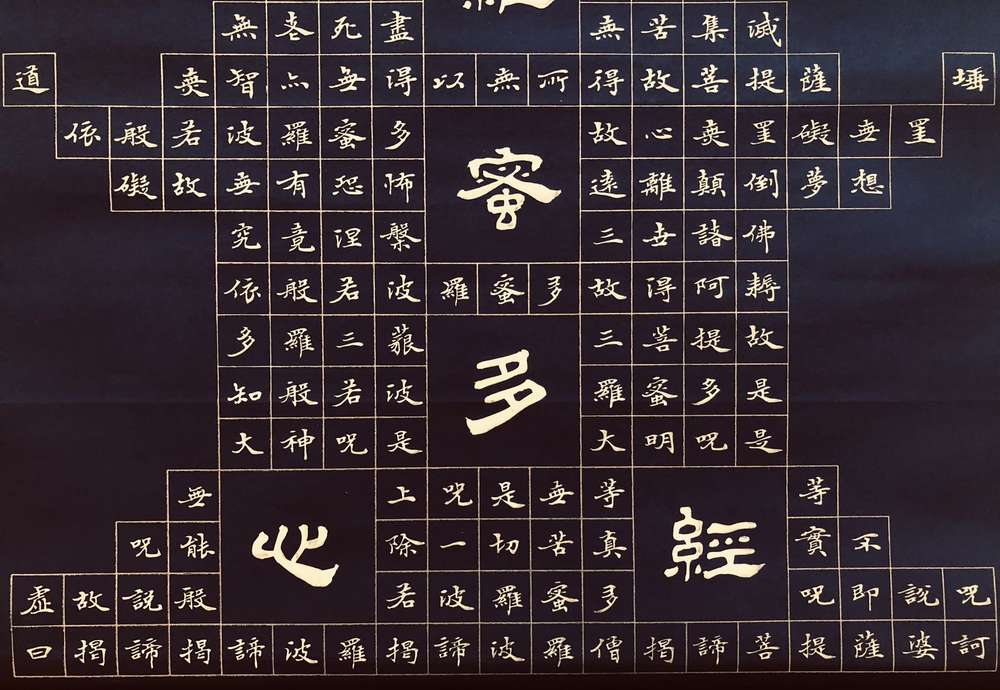 無老死盡 無苦集滅
道 無智亦無得以無所得故菩提薩 埵
依般若波羅蜜多 故心無罣礙無罣
蜜
礙故無有恐怖 遠離顛倒夢想
究竟涅槃 三世諸佛
依般若波羅蜜多故得阿耨
多羅三藐 三菩提故
多
知般若波 羅蜜多是
大神呪是 大明呪是
無 上呪是無等 等
呪能 心 除一切苦真 經 實不
虛故說般 若波羅蜜多 呪即說呪
曰揭諦揭諦波羅揭諦波羅僧揭諦菩提薩婆訶